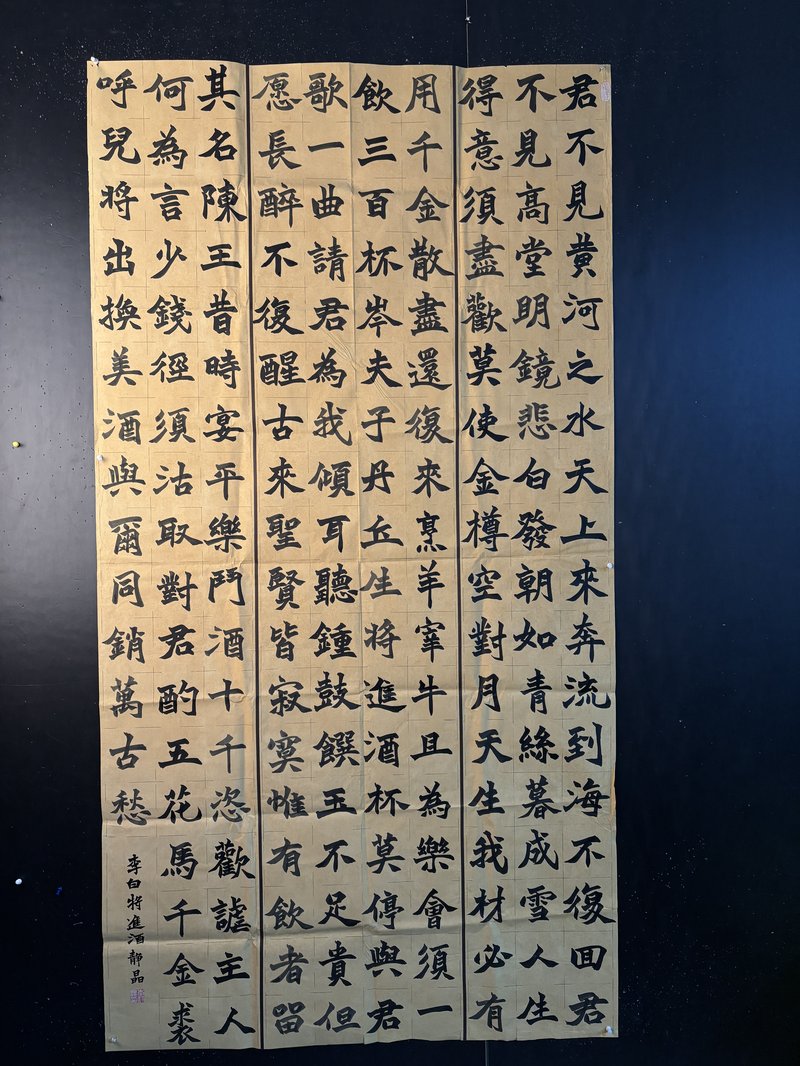 君不見黄河之水天上來奔流到海不復回君
不見高堂明鏡悲白發朝如青絲暮成雪人生
得意須盡歡莫使金樽空對月天生我材必有
用千金散盡還復來烹羊宰牛且為樂會須一
飲三百杯岑夫子丹丘生将進酒杯莫停與君
歌一曲請君為我傾耳聽鍾鼓饌玉不足貴但
愿長醉不復醒古來聖賢皆寂寞惟有飲者留
其名陳王昔時宴平樂鬥酒十千恣歡謔主人
何為言少錢徑須沽取對君酌五花馬千金裘
呼兒将出換美酒與爾同銷萬古愁
李白将進酒靜晶